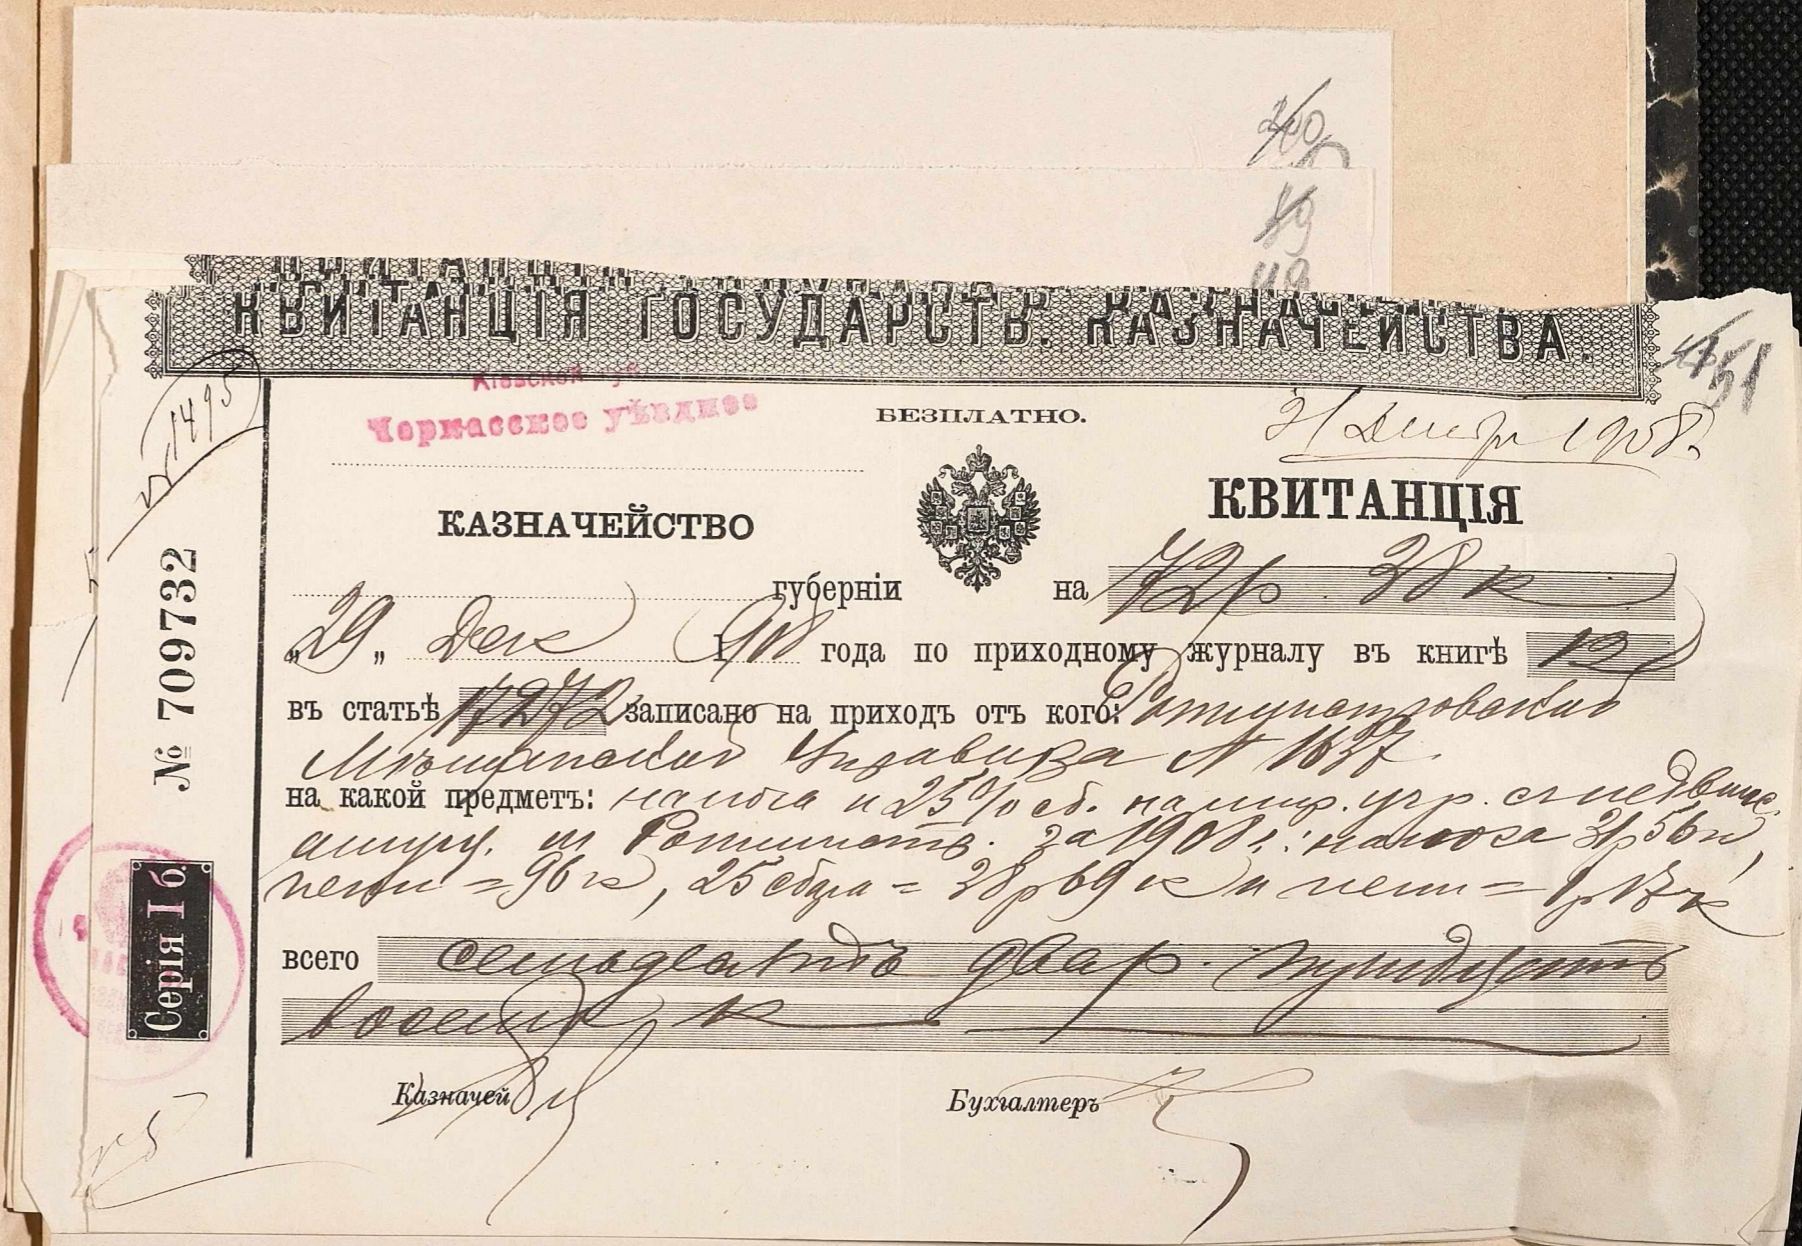 200
89
49
КВИТАНЦІЯ ГОСУДАРСТВ. КАЗНАЧЕЙСТВА.
51
№ 1495
Кіевской губ
Черкасское уѣздное
БЕЗПЛАТНО.
31 Декбр 1908 г.
КАЗНАЧЕЙСТВО
КВИТАНЦІЯ
губерніи
на 72 р 38 к
„29„ Дек 1908 года по приходному журналу въ книгѣ 12
въ статьѣ 17272 записано на приходъ отъ кого: Ротмистровской
Мѣщанской Управика № 1637
на какой предметъ: налога и 25% сб. на
за 1908 г.: налога 31 р 56 к,
пени = 96 к, 25 сбора = 38 р 69 к и пени = 1 р 17 к
всего семьдесятъ два р. тридцать
восемь к
Казначей
Бухгалтеръ
№ 709732
Серія I б.